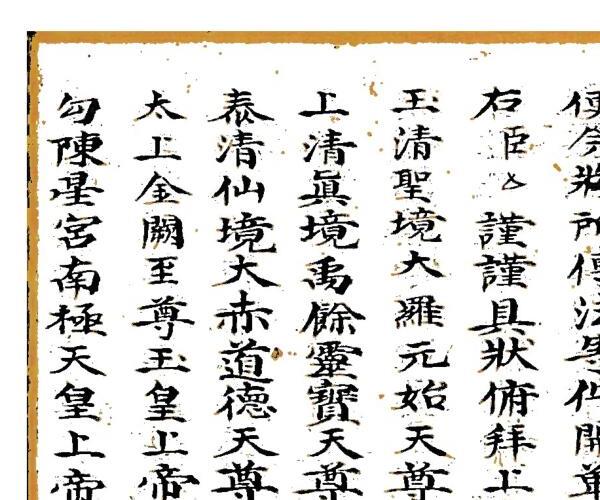 右臣厶謹謹具狀俯拜上
玉清聖境大羅元始天尊
上清眞境禹餘靈寶天尊
泰清仙境大赤道德天尊
太上金闕至尊玉皇上帝
勾陳星宮南極天皇上帝